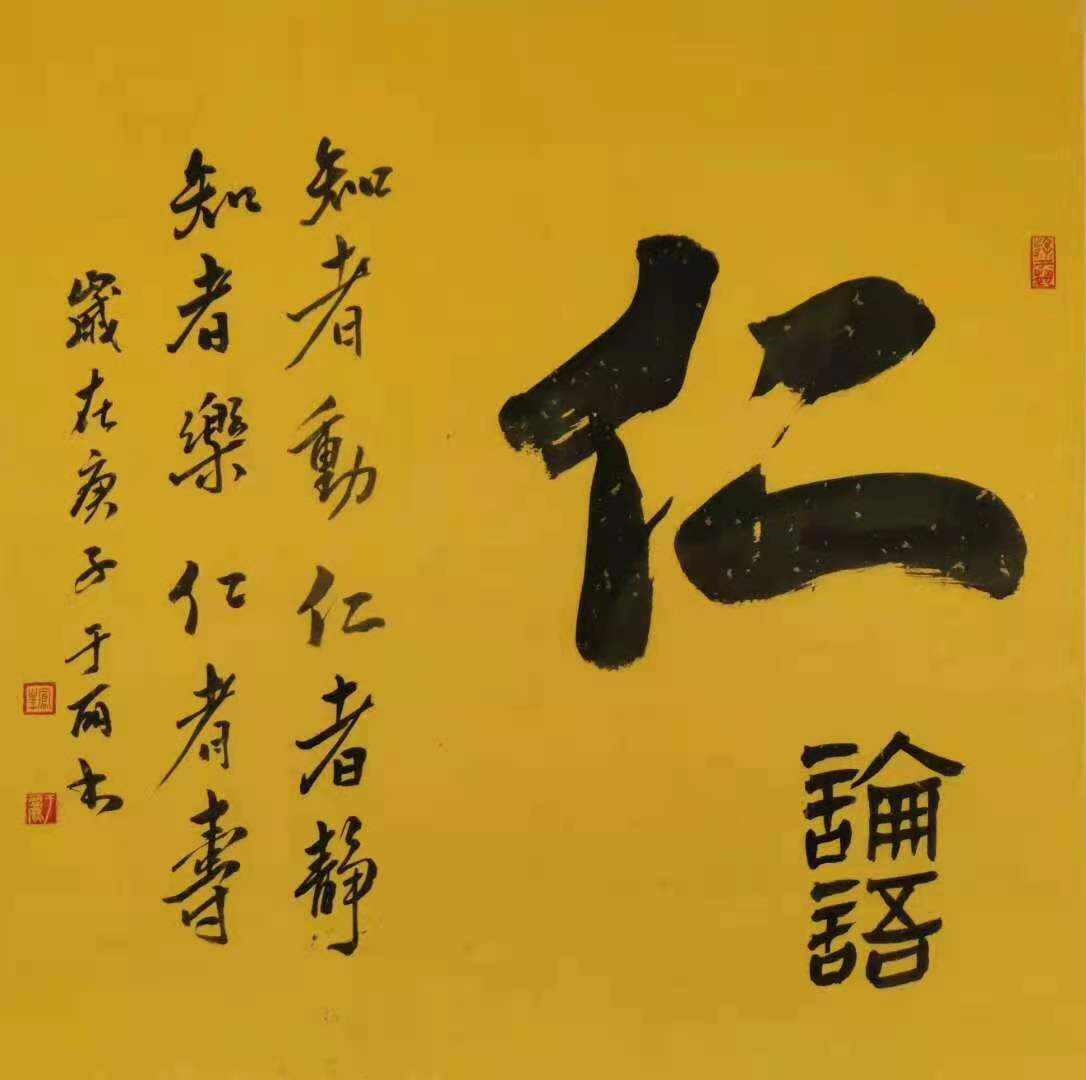 仁
論語
知者動仁者靜
知者樂仁者壽
歲在庚子于丽书